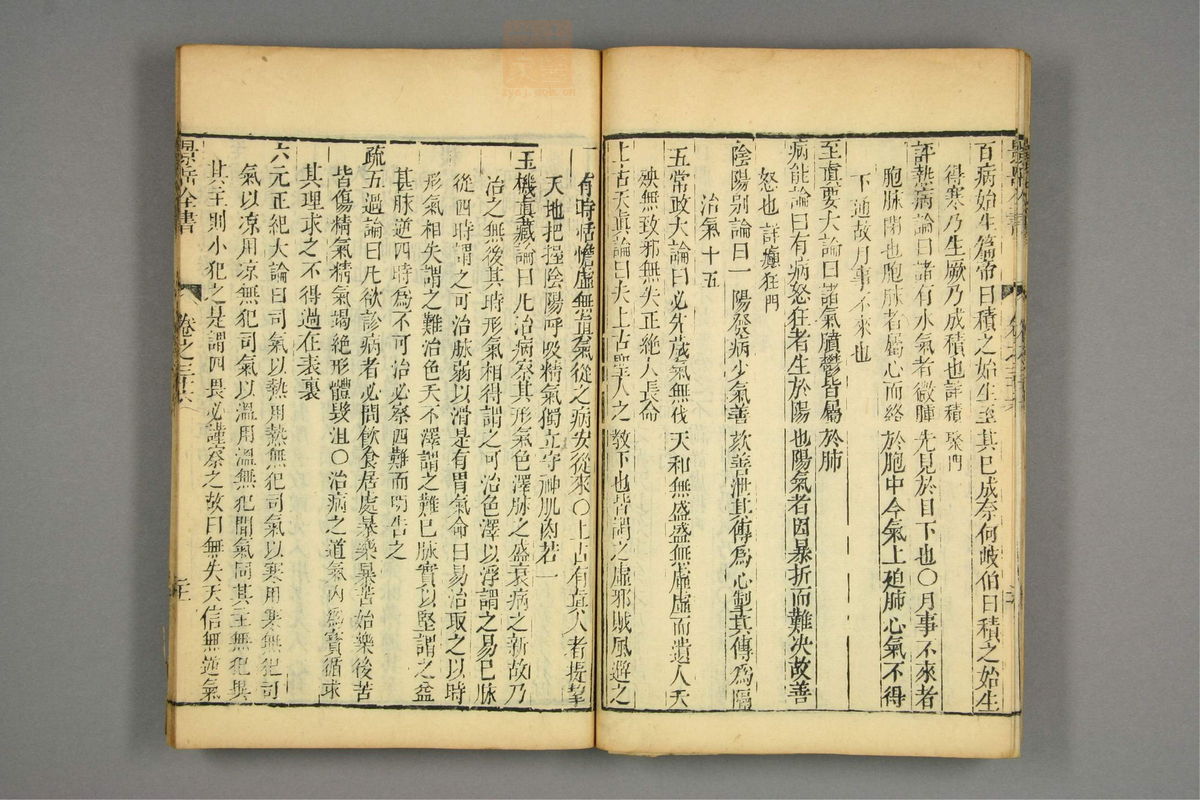 百病始生篇帝曰積之始生至其已成奈何岐伯曰積之始生
得寒乃生厥乃成積也詳積聚門
評熱病論曰諸有水氣者微腫先見於目下也○月事不來者
胞脉閉也胞脉者屬心而絡於胞中今氣上廹肺心氣不得
下通故月事不來也
至眞要大論曰諸氣膹鬱皆屬於肺
病能論曰有病怒狂者生於陽也陽氣者因暴折而難决故善
怒也詳癲狂門
陰陽别論曰一陽發病少氣善欬善泄其傳爲心掣其傳爲隔
治氣十五
五常政大論曰必先嵗氣無伐天和無盛盛無虛虛而遺人夭
殃無致邪無失正絶人長命
上古天眞論曰夫上古聖人之敎下也皆謂之虛邪賊風避之
有時恬憺虛無眞氣從之病安從來○上古有眞人者提挈
天地把握陰陽呼吸精氣獨立守神肌肉若一
玉機眞藏論曰凡治病察其形氣色澤脉之盛衰病之新故乃
治之無後其時形氣相得謂之可治色澤以浮謂之易已脉
從四時謂之可治脉弱以滑是有胃氣命曰易治取之以時
形氣相失謂之難治色夭不澤謂之難已脉實以堅謂之益
甚脉逆四時爲不可治必察四難而明告之
疏五過論曰凡欲診病者必問飲食居處暴樂暴苦始樂後苦
皆傷精氣精氣竭絶形體毀沮○治病之道氣內爲寶循求
其理求之不得過在表裏
六元正紀大論曰司氣以熱用熱無犯司氣以寒用寒無犯司
氣以凉用凉無犯司氣以溫用溫無犯間氣同其主無犯異
其主則小犯之是謂四畏必謹察之故曰無失天信無逆氣
景岳全書
卷之三十六